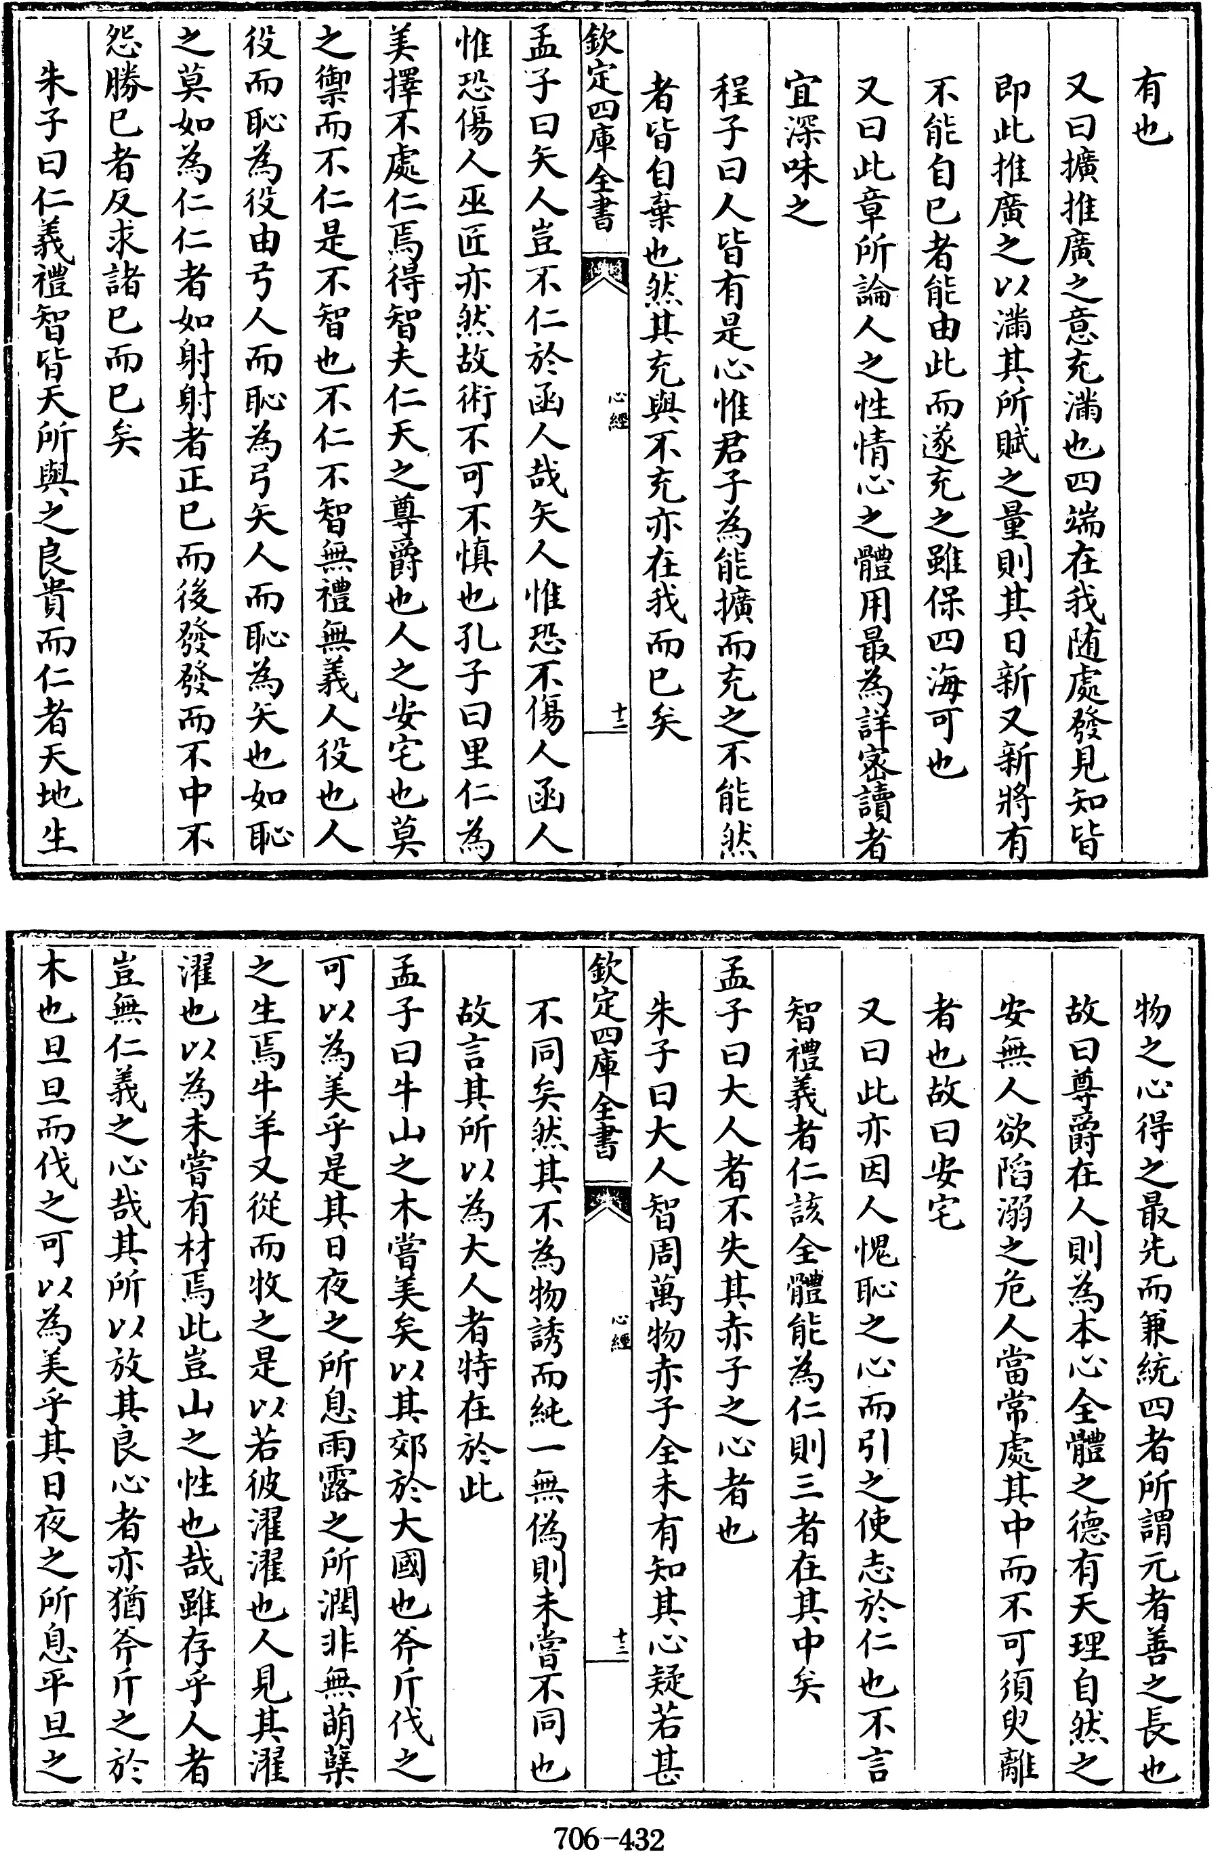 有也
又曰擴推廣之意充滿也四端在我随處發見知皆
即此推廣之以滿其所賦之量則其日新又新將有
不能自已者能由此而遂充之雖保四海可也
又曰此章所論人之性情心之體用最為詳宻讀者
宜深味之
程子曰人皆有是心惟君子為能擴而充之不能然
者皆自棄也然其充與不充亦在我而已矣
欽定四庫全書
心經
十二
孟子曰矢人豈不仁於函人哉矢人惟恐不傷人函人
惟恐傷人巫匠亦然故術不可不慎也孔子曰里仁為
美擇不處仁焉得智夫仁天之尊爵也人之安宅也莫
之禦而不仁是不智也不仁不智無禮無義人役也人
役而恥為役由弓人而恥為弓矢人而恥為矢也如恥
之莫如為仁仁者如射射者正已而後發發而不中不
怨勝已者反求諸已而已矣
朱子曰仁義禮智皆天所與之良貴而仁者天地生
物之心得之最先而兼統四者所謂元者善之長也
故曰尊爵在人則為本心全體之德有天理自然之
安無人欲陷溺之危人當常處其中而不可須臾離
者也故曰安宅
又曰此亦因人愧恥之心而引之使志於仁也不言
智禮義者仁該全體能為仁則三者在其中矣
孟子曰大人者不失其赤子之心者也
朱子曰大人智周萬物赤子全未有知其心疑若甚
欽定四庫全書
心經
十三
不同矣然其不為物誘而純一無偽則未嘗不同也
故言其所以為大人者特在於此
孟子曰牛山之木嘗美矣以其郊於大國也斧斤伐之
可以為美乎是其日夜之所息雨露之所潤非無萌蘖
之生焉牛羊又從而牧之是以若彼濯濯也人見其濯
濯也以為未嘗有材焉此豈山之性也哉雖存乎人者
豈無仁義之心哉其所以放其良心者亦猶斧斤之於
木也旦旦而伐之可以為美乎其日夜之所息平旦之
706-432